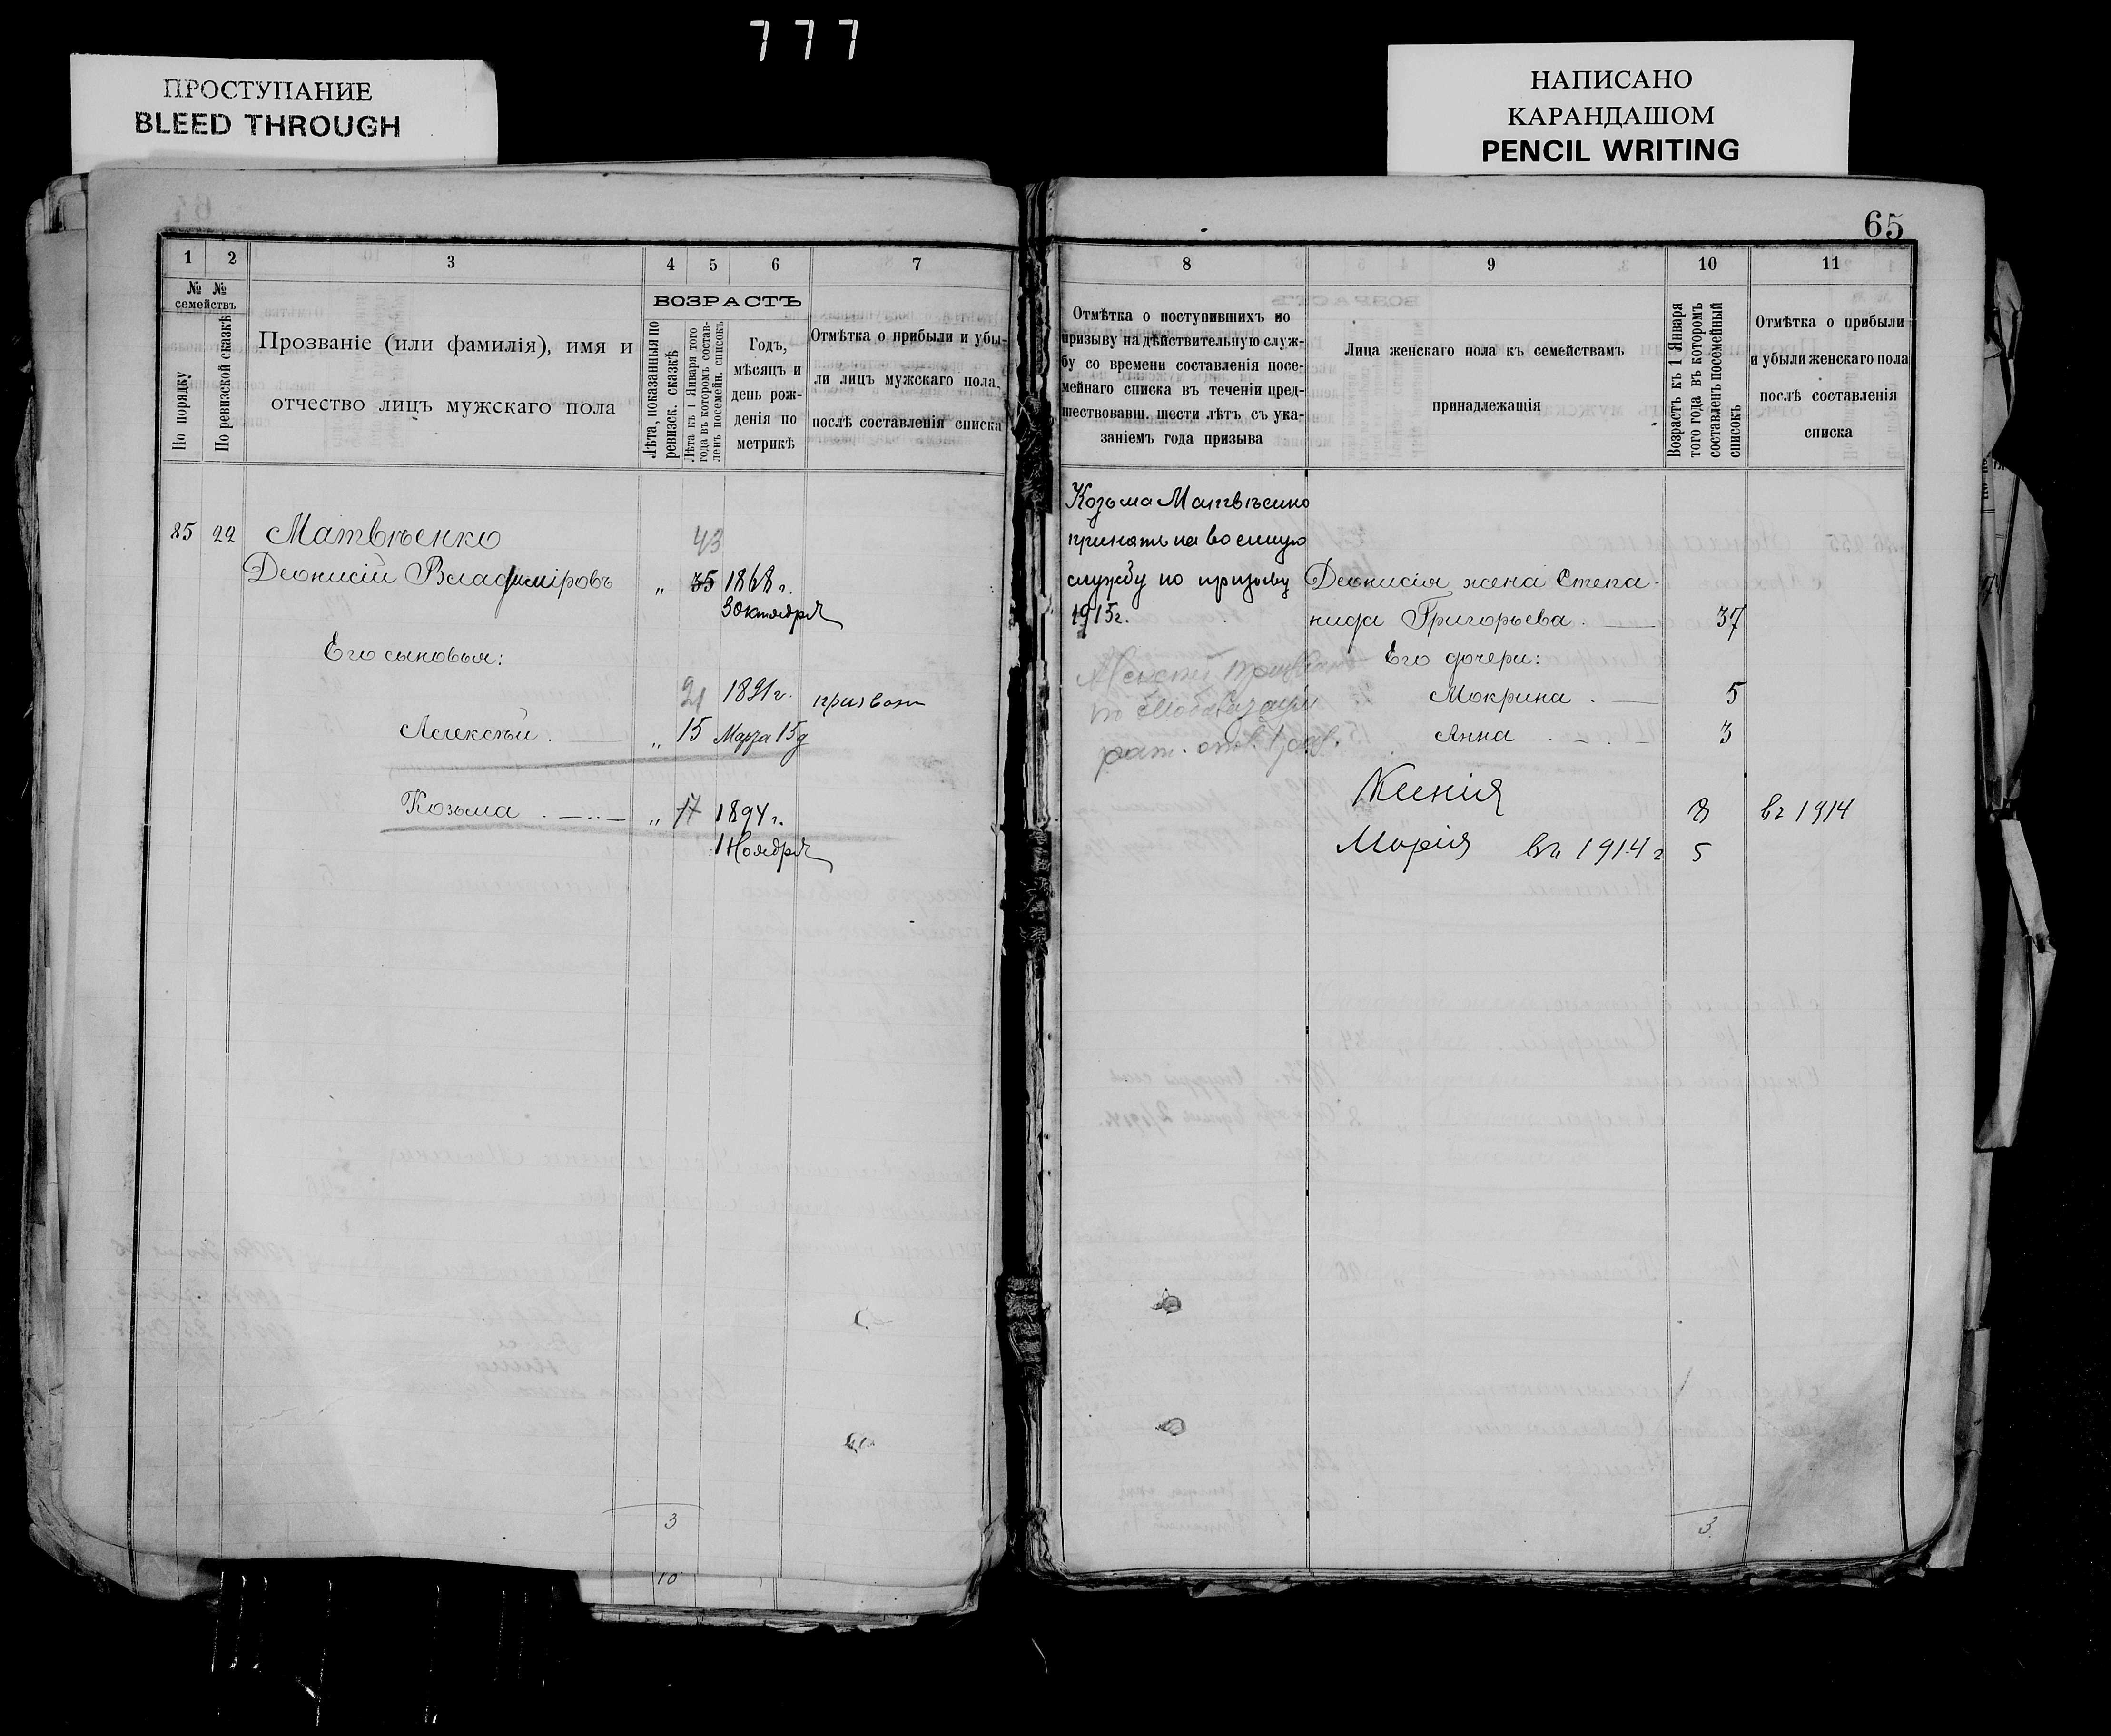 777
ПРОСТУПАНИЕ
BLEED THROUGH
НАПИСАНО
КАРАНДАШОМ
PENCIL WRITING
1 2 3 4 5 6 7
№ №
семействъ
По порядку
По ревизской сказкѣ
Прозваніе (или фамилія), имя и
отчество лицъ мужскаго пола
ВОЗРАСТЪ
Лѣта, показанныя по
ревизск. сказкѣ
Лѣта къ 1 Января того
года въ которомъ состав-
ленъ посемейн. списокъ
Годъ,
мѣсяцъ и
день рож-
денія по
метрикѣ
Отмѣтка о прибыли и убы-
ли лицъ мужскаго пола,
послѣ составленія списка
85 22 Матвѣенко 43
Деонисій Владиміровъ „ 35 1868 г.
3 октября
Его сыновья:
21 1891 г. призван
Алексѣй . „ 15 Марта 15 д
Козьма . „ 17 1894 г.
1 Ноября
3
10
65
8 9 10 11
Отмѣтка о поступившихъ по
призыву на дѣйствительную служ-
бу со времени составленія посе-
мейнаго списка въ теченіи пред-
шествовавш. шести лѣтъ съ ука-
заніемъ года призыва
Лица женскаго пола къ семействамъ
принадлежащія
Возрастъ къ 1 Января
того года въ которомъ
составленъ посемейный
списокъ
Отмѣтка о прибыли
и убыли женскаго пола
послѣ составленія
списка
Козьма Матвѣенко
принятъ на военную
службу по призыву
1915 г.
Алексѣй призванъ
по мобилизаціи
рат. опол. 1 раз.
Деонисія жена Степа-
нида Григорьева . 37
Его дочери:
Мокрина . 5
Анна . 3
Ксенія 8 въ 1914
Марія въ 1914 г 5
3